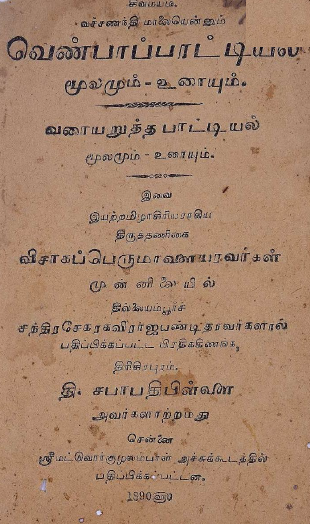 வச்சணந்தி மாலையென்னும்
வெண்பாப்பாட்டியல்
மூலமும் - உரையும்.
வரையறுத்த பாட்டியல்
மூலமும் - உரையும்.
இவை
இயற்றமிழாசிரியராகிய
திருத்தணிகை
விசாகப்பெருமாளையரவர்கள்
முன்னிலையில்
தில்லையம்பூர்ச்
சந்திரசேகரகவிராஜபண்டிதரவர்களால்
பதிப்பிக்கப்பட்ட பிரதிக்கிணங்க,
திரிசிரபுரம்.
தி. சபாபதிபிள்ளை
அவர்களாற்றமது
சென்னை
ஸ்ரீமட்டுவார்குழலம்பாள் அச்சுக்கூடத்தில்
பதிப்பிக்கப்பட்டன.
1890௵